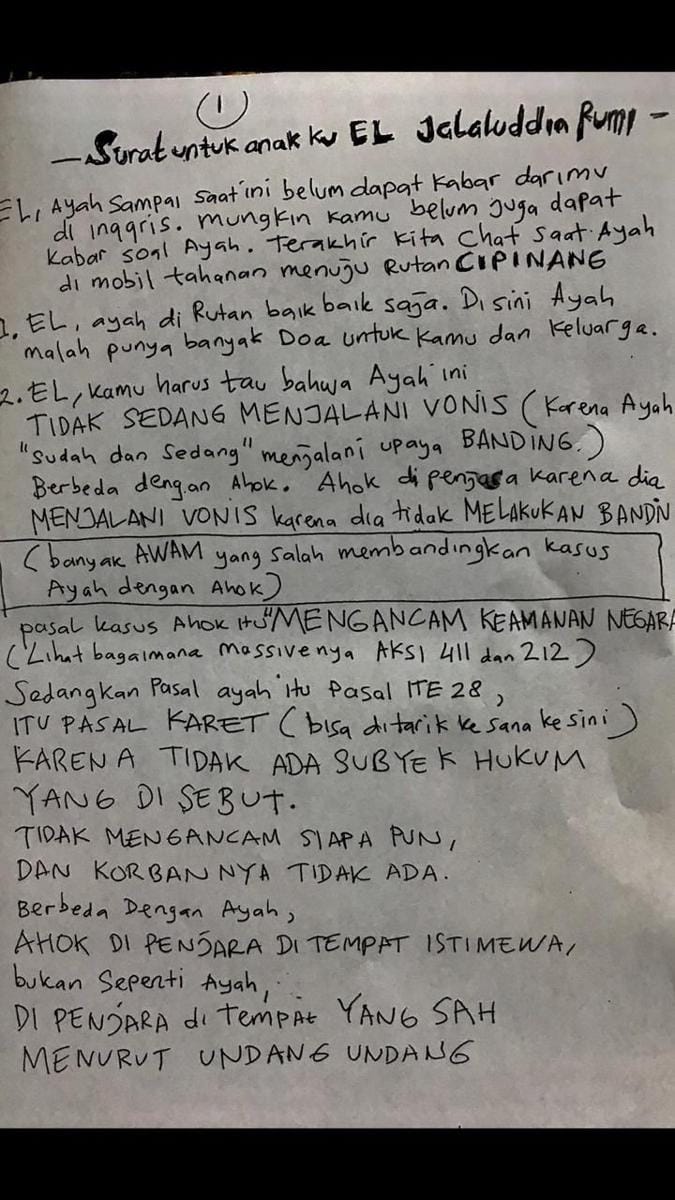 1
- Surat untuk anak ku EL Jalaluddin Rumi -
EL, Ayah sampai saat ini belum dapat kabar darimu
di inggris. mungkin kamu belum juga dapat
kabar soal Ayah. Terakhir kita chat saat Ayah
di mobil tahanan menuju Rutan CIPINANG
1. EL, ayah di Rutan baik baik saja. Disini Ayah
malah punya banyak Doa untuk kamu dan keluarga.
2. EL, kamu harus tau bahwa Ayah ini
TIDAK SEDANG MENJALANI VONIS (Karena Ayah
"Sudah dan Sedang" menjalani upaya BANDING.)
Berbeda dengan Ahok. Ahok di penjara karena dia
MENJALANI VONIS karena dia tidak MELAKUKAN BANDIN
(banyak AWAM yang salah membandingkan kasus
Ayah dengan Ahok)
pasal kasus Ahok itu "MENGANCAM KEAMANAN NEGARA
(Lihat bagaimana massivenya AKSI 411 dan 212)
Sedangkan Pasal ayah itu Pasal ITE 28,
ITU PASAL KARET (bisa ditarik ke sana ke sini)
KARENA TIDAK ADA SUBYEK HUKUM
YANG DI SEBUT.
TIDAK MENGANCAM SIAPA PUN,
DAN KORBANNYA TIDAK ADA.
Berbeda Dengan Ayah,
AHOK DI PENJARA DI TEMPAT ISTIMEWA,
bukan Seperti Ayah,
DI PENJARA di Tempat YANG SAH
MENURUT UNDANG UNDANG